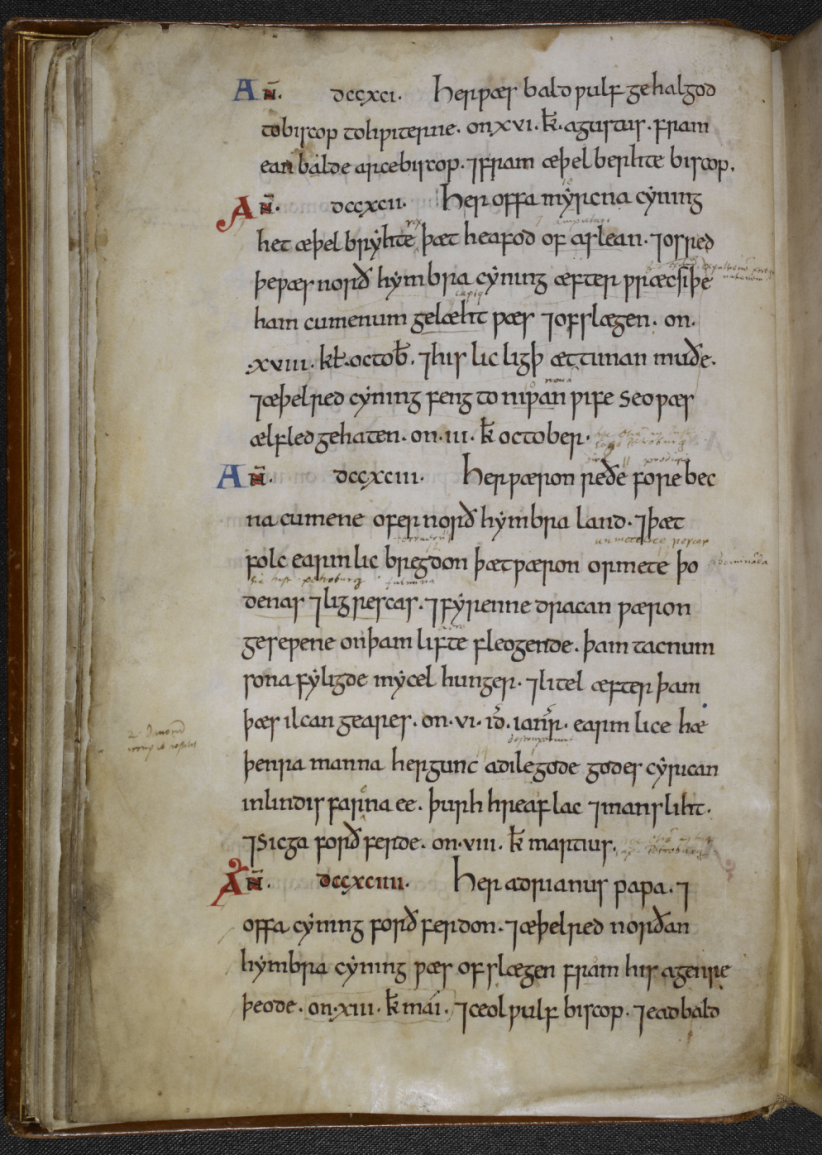 An̄. dccxci. Her ƿæs baldƿulf gehalgod
to biscop to hƿiterne. on xvi. k̄. agustus. fram
eanbalde arcebiscop. ⁊ fram æþelberhte biscop.
An̄. dccxcii. Her offa myrcna cyning
het æþelbryhte þæt heafod of aslean. ⁊ osred
þe ƿæs norðhymbria cyning æfter ƿræcsiþe
ham cumenum gelæht ƿæs ⁊ ofslægen. on.
.xviii. kł. octob̄. ⁊ his lic ligþ æt tinan muðe.
⁊ æþelred cyning feng to niƿan ƿife seo ƿæs
ælfled gehaten. on .iii. k̄ october.
An̄. dccxciii. Her ƿæron reðe forebec
na cumene ofer norðhymbra land. ⁊ þæt
folc earmlic bregdon þæt ƿæron ormete þo
denas ⁊ ligrescas. ⁊ fyrenne dracan ƿæron
geseƿene on þam lifte fleogende. þam tacnum
sona fyligde mycel hunger. ⁊ litel æfter þam
þæs ilcan geares. on .vi. id̄. ianr̄. earmlice hæ
þenra manna hergunc adilegode godes cyrican
in lindisfarna ee. þurh hreaflac ⁊ mansliht.
⁊ Sicga forðferde. on .viii. k̄ martius.
An̄. dccxciiii. Her adrianus papa. ⁊
offa cyning forðferdon. ⁊ æþelred norðan
hymbra cyning ƿæs ofslægen fram his agenre
þeode. on .xiii. k̄ mai. ⁊ ceolƿulf biscop. ⁊ eadbald